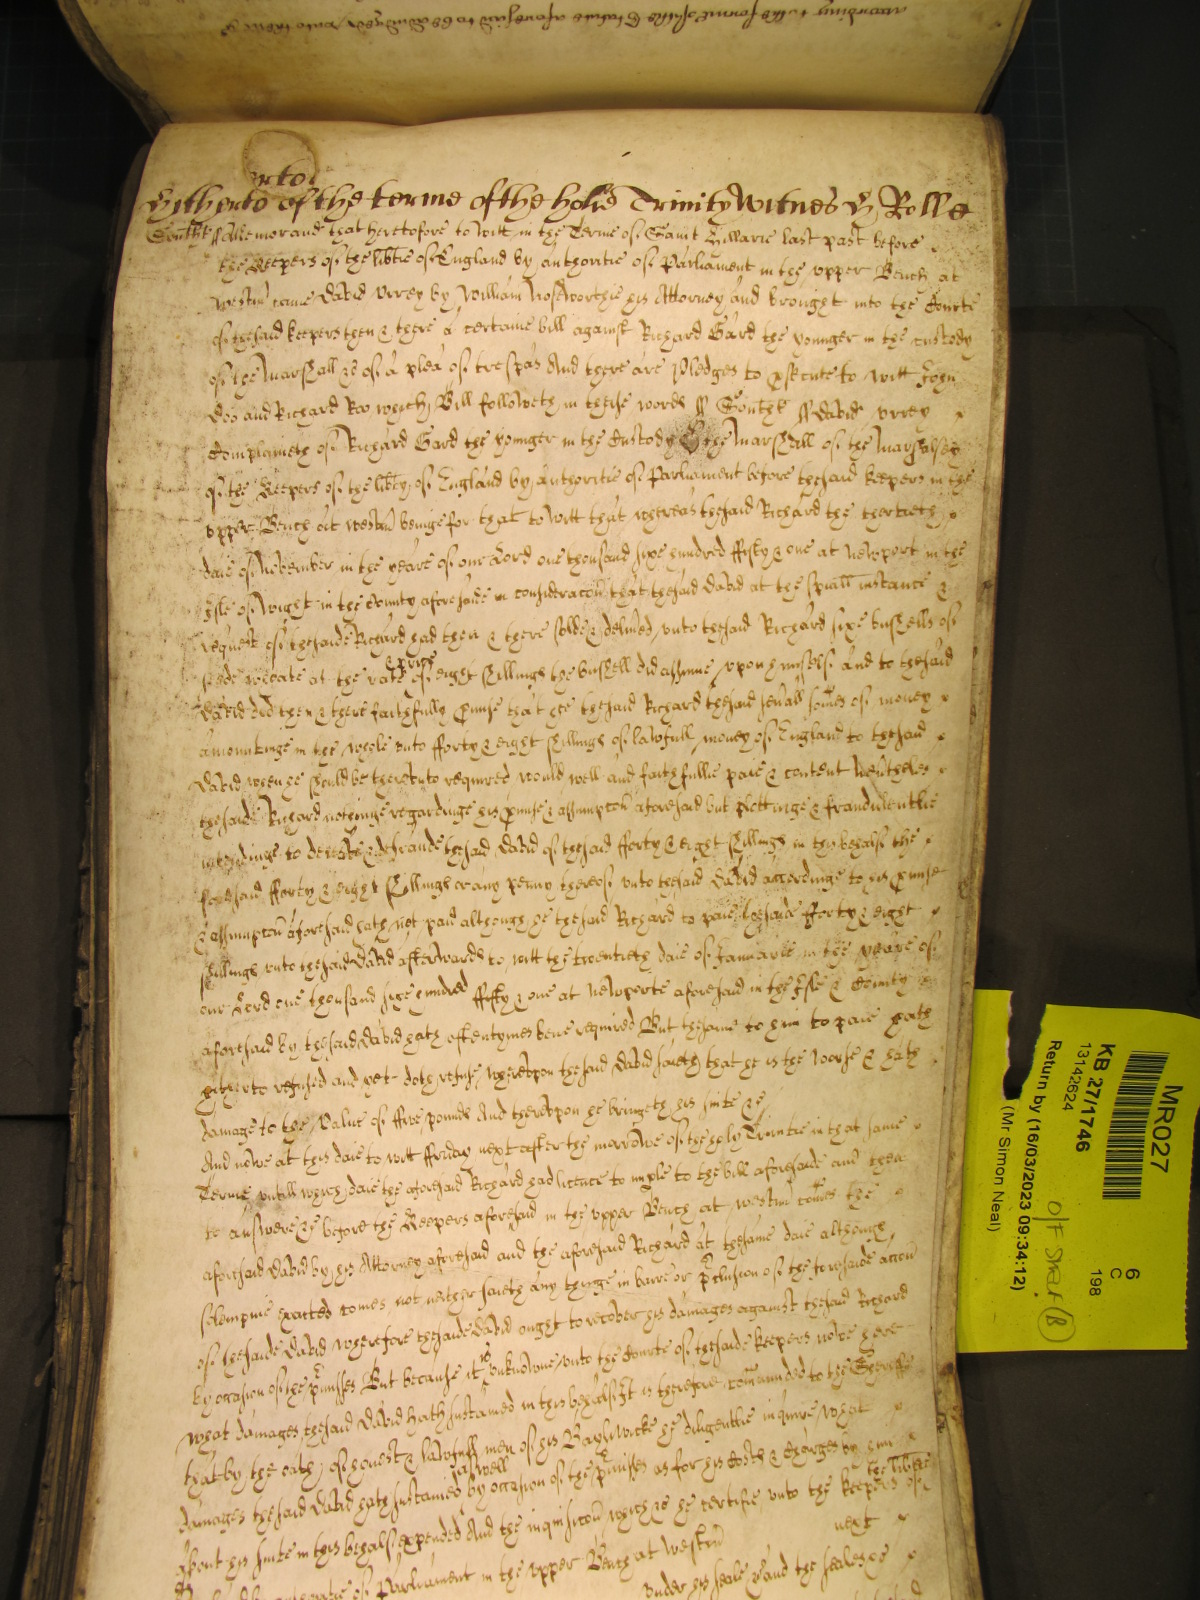 accordinge to the forme of the Statute aforesaid to be adiudged unto them &
erto
Hitherto of the terme of the holie Trinity Witnes H: Rolle
Southt ss Memorand that heretofore to witt in the Terme of Saint Hillarie last past before
the Keepers of the libtie of England by authoritie of Parliament in the upper Bench at
Westm came David Urrey by William Noseworthie his Attorney and brought into the Courte
of the said keepers then & there a certaine bill against Richard Gard the younger in the custody
of the Marshall &c of a plea of trespas And there are Pledges to psecute to witt John
Doo and Richard Roo which Bill followeth in theise words ss Southt ss David Urrey
Complaineth of Richard Gard the younger in the Custody of the Marshall of the Marshalsey
of the Keepers of the libty of England by authoritie of Parliament before the said keepers in the
upper Bench att Westm beinge for that to witt that whereas the said Richard the thertieth
daie of November in the yeare of our Lord one thousand sixe hundred fifty & one at Newport in the
Isle of Wight in the County aforesaide in consideracon that the said David at the spiall instance &
request of the saide Richard had then & there solde & delived unto the said Richard sixe bushells of
seede wheate at the rate & price of eight shillings the bushell did assume upon himself and to the said
David did then & there faithfully pmise that hee the said Richard the said sevall somes of money
amountinge in the whole unto fforty & eight shillings of lawfull money of England to the said
David when he should be thereunto required would well and faithfullie paie & content Neutheles
the saide Richard nothinge regardinge his pmise & assumpcon aforesaid but plottinge & fraudulentlie
intendinge to deceive & defraude the said David of the said fforty & eight shillings in this behalf the
foresaid fforty & eight shillings or any penny thereof unto the said David accordinge to his pmise
& assumpcon aforesaid hath not paid although he the said Richard to paie the saide fforty & eight
shillings unto the said David afterwards to witt the twentieth daie of Januarie in the yeare of
our Lord one thousand sixe hundred fifty & one at Newporte aforesaid in the Isle & County
aforesaid by the said David hath oftentymes bene required But the same to him to paie hath
hitherto refused and yet doth refuse whereupon the said David saieth that he is the worse & hath
damage to the value of ffive pounds And thereupon he bringeth his suite &c
And nowe at this daie to witt ffriday next after the morrowe of the holy Trinitie in that same
Terme untill which daie the aforesaid Richard had licence to imple to the bill aforesaide and then
to answere &c before the Keepers aforesaid in the upper Bench at Westm comes the
aforesaid David by his Attorney aforesaid and the aforesaid Richard at the same daie although
solempnie exacted comes not neither saieth any thinge in barre or pclusion of the foresaide accon
of the saide David wherefore the saide David ought to recover his damages against the said Richard
by occasion of the pmisses But because it is unknowne unto the Courte of the saide keepers nowe here
what damages the said David hath sustained in this behalf It is therefore comaunded to the Sheriffe
that by the oath of honest & lawfull men of his Bayliwicke he diligentlie inquire what
damages the said David hath sustained aswell by occasion of the pmisses as for his costs & charges by him
about his suite in this behalf expended And the inquisicon which &c he certifie unto the keepers of the libtie
of England by authoritie of Parliament in the upper Bench at Westm next
under his seale &c and the seales &c
MR027
KB 27/1746
13142624
Return by (16/03/2023 09:34:12)
(Mr Simon Neal)
6
C
198